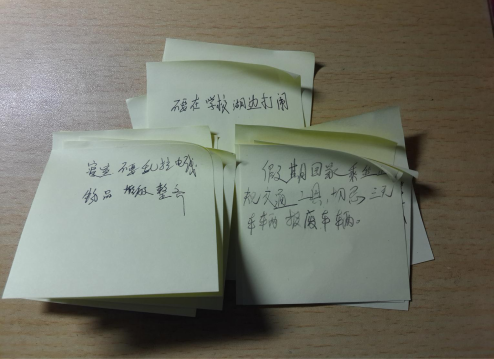 不要在学校湖边打闹
寝室不要乱拉电线
物品摆放整齐
假期回家乘坐正
规交通工具，切忌三无
车辆报废车辆。